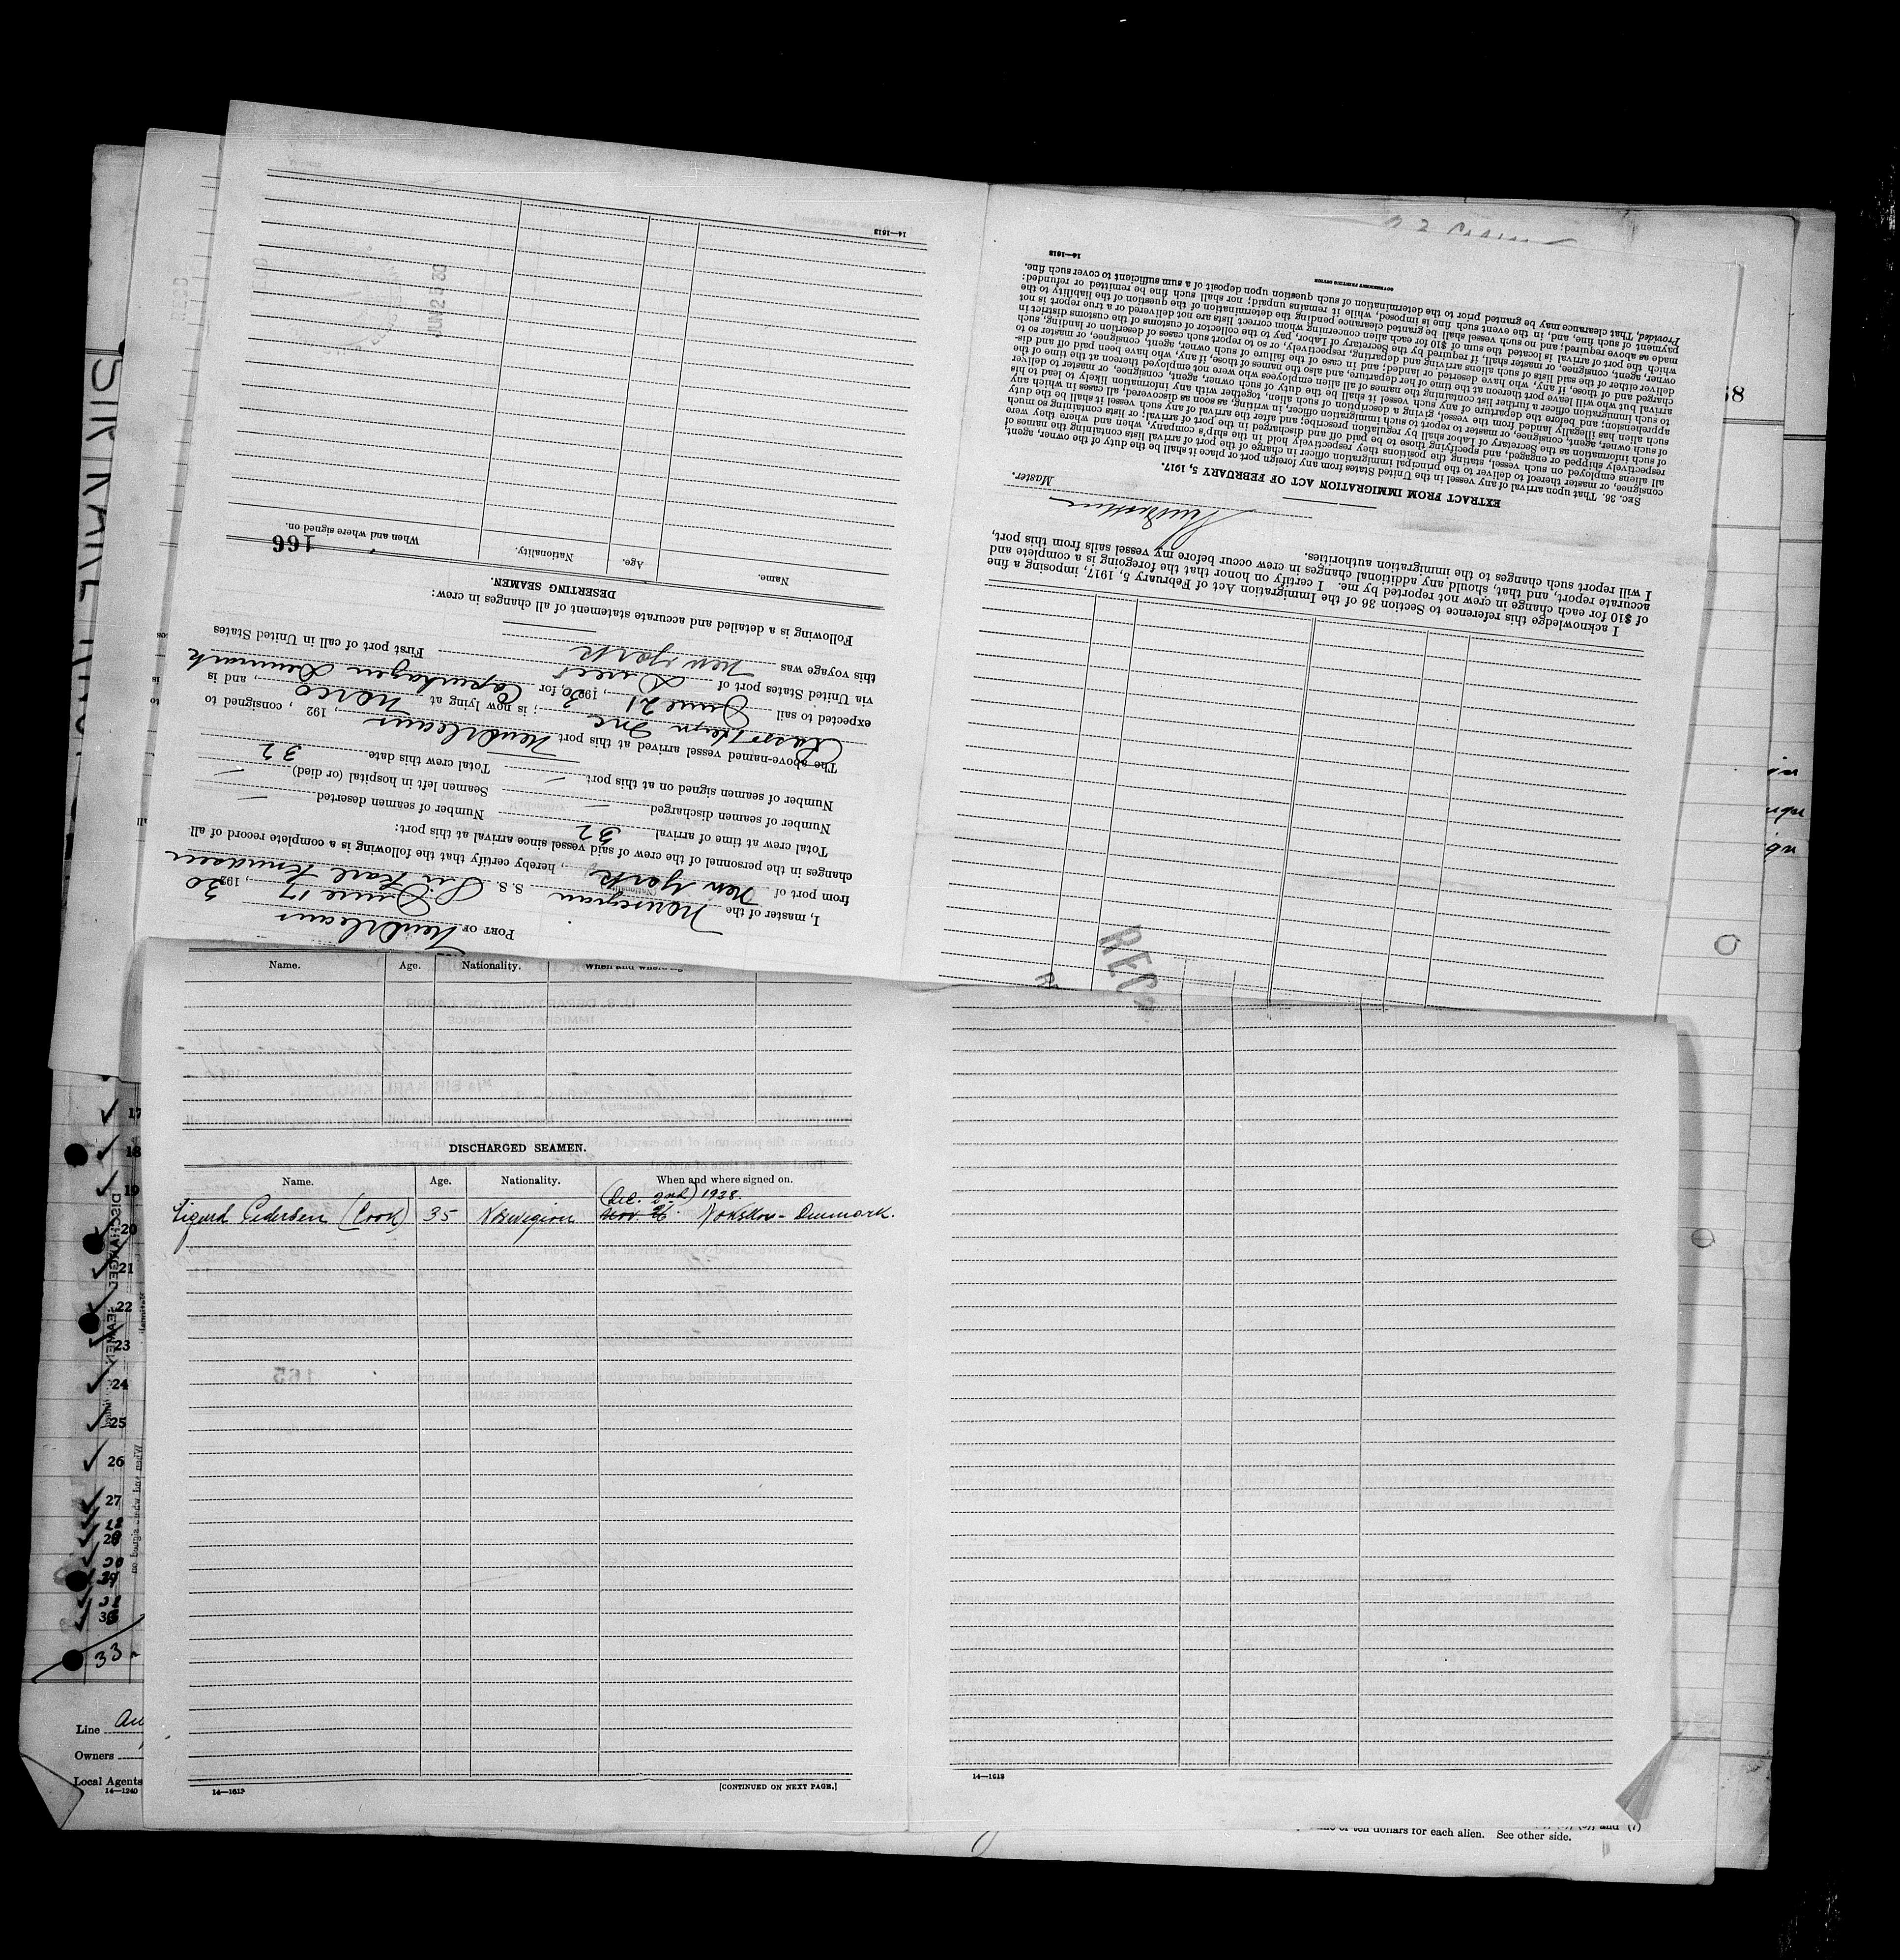 14—1613
JUN 25 30
166
Name.
Age.
Nationality.
When and where signed on.
DESERTING SEAMEN.
PORT OF New Orleans
June 17, 1930
I, master of the Norwegian S. S. Sir Karl Knudsen
from port of New York, hereby certify that the following is a complete record of all
changes in the personnel of the crew of said vessel since arrival at this port:
Total crew at time of arrival 32 Number of seamen deserted —
Number of seamen discharged — Seamen left in hospital (or died) —
Number of seamen signed on at this port — Total crew this date 32
The above-named vessel arrived at this port New Orleans, 192 , consigned to
Inc ; is now lying at Norco, and is
expected to sail June 21, 1930, for Copenhagen Denmark
via United States port of Direct First port of call in United States
this voyage was New York
Following is a detailed and accurate statement of all changes in crew:
I acknowledge this reference to Section 36 of the Immigration Act of February 5, 1917, imposing a fine
of $10 for each change in crew not reported by me. I certify on honor that the foregoing is a complete and
accurate report, and that, should any additional changes in crew occur before my vessel sails from this port,
I will report such changes to the immigration authorities.
Master.
EXTRACT FROM IMMIGRATION ACT OF FEBRUARY 5, 1917.
SEC. 36. That upon arrival of any vessel in the United States from any foreign port or place it shall be the duty of the owner, agent,
consignee, or master thereof to deliver to the principal immigration officer in charge of the port of arrival lists containing the names of
all aliens employed on such vessel, stating the positions they respectively hold in the ship's company, when and where they were
respectively shipped or engaged, and specifying those to be paid off and discharged in the port of arrival; or lists containing so much
of such information as the Secretary of Labor shall by regulation prescribe; and after the arrival of any such vessel it shall be the duty
of such owner, agent, consignee, or master to report to such immigration officer, in writing, as soon as discovered, all cases in which any
such alien has illegally landed from the vessel, giving a description of such alien, together with any information likely to lead to his
apprehension; and before the departure of any such vessel it shall be the duty of such owner, agent, consignee, or master to deliver
to such immigration officer a further list containing the names of all alien employees who were not employed thereon at the time of the
arrival but who will leave port thereon at the time of her departure, and also the names of those, if any, who have been paid off and dis-
charged and of those, if any, who have deserted or landed; and in case of the failure of such owner, agent, consignee, or master so to
deliver either of the said lists of such aliens arriving and departing, respectively, or so to report such cases of desertion or landing, such
owner, agent, consignee, or master shall, if required by the Secretary of Labor, pay to the collector of customs of the customs district in
which the port of arrival is located the sum of $10 for each alien concerning whom correct lists are not delivered or a true report is not
made as above required; and no such vessel shall be granted clearance pending the determination of the question of the liability to the
payment of such fine, and, in the event such fine is imposed, while it remains unpaid; nor shall such fine be remitted or refunded:
Provided, That clearance may be granted prior to the determination of such question upon deposit of a sum sufficient to cover such fine.
14—1613
GOVERNMENT PRINTING OFFICE
REC
Name. Age. Nationality. When and where
DISCHARGED SEAMEN.
Name. Age. Nationality. When and where signed on.
(Dec. 2nd) 1928.
Sigurd Pedersen (Cook) 35 Norwegian Nov. 26. Nakskov - Denmark.
14—1613 [CONTINUED ON NEXT PAGE.]
14—1613
17
18
19
20
21
22
23
24
25
26
27
33
DISCHARGED SEAMEN
Line
Owners
Local Agents
14—1240
of ten dollars for each alien. See other side.